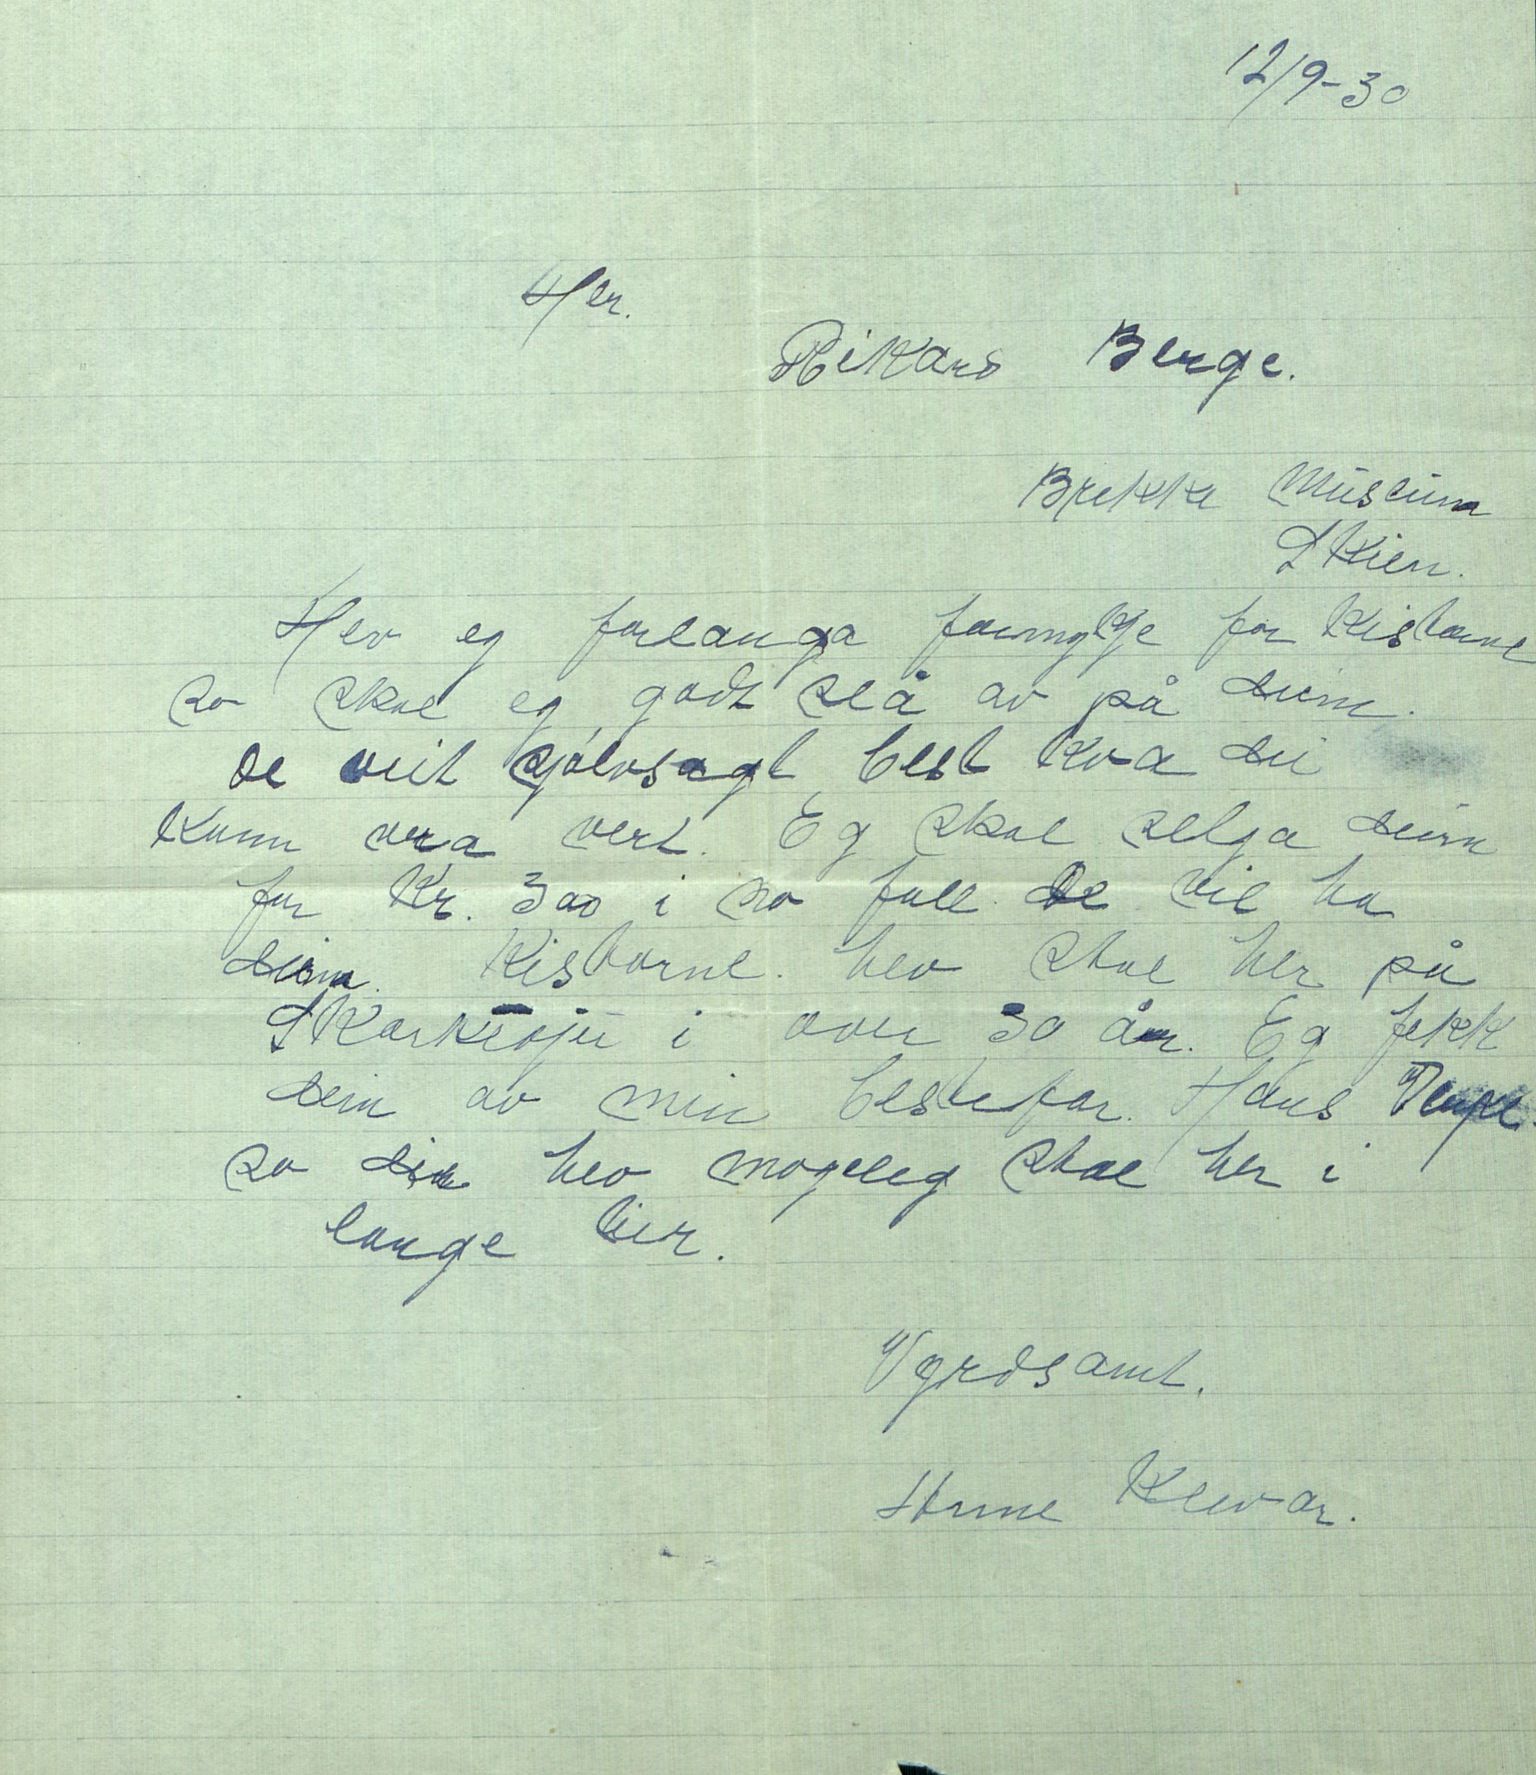 12/9-30
Her.
Rikard Berge.
Brekke Museum
Skien.
Hev eg forlanga formykje for Kistorne
so skal eg godt slå av på deim.
De veit sjølvsagt best kva dei
kann vera vert. Eg skal selja deim
for Kr. 300 i so fall De vil ha
deim. Kistorne hev stae her på
i over 30 år. Eg fekk
deim av min bestefar. Hans
so dei hev mogeleg stae her i
lange tier.
Vyrdsamt.
Klevar.